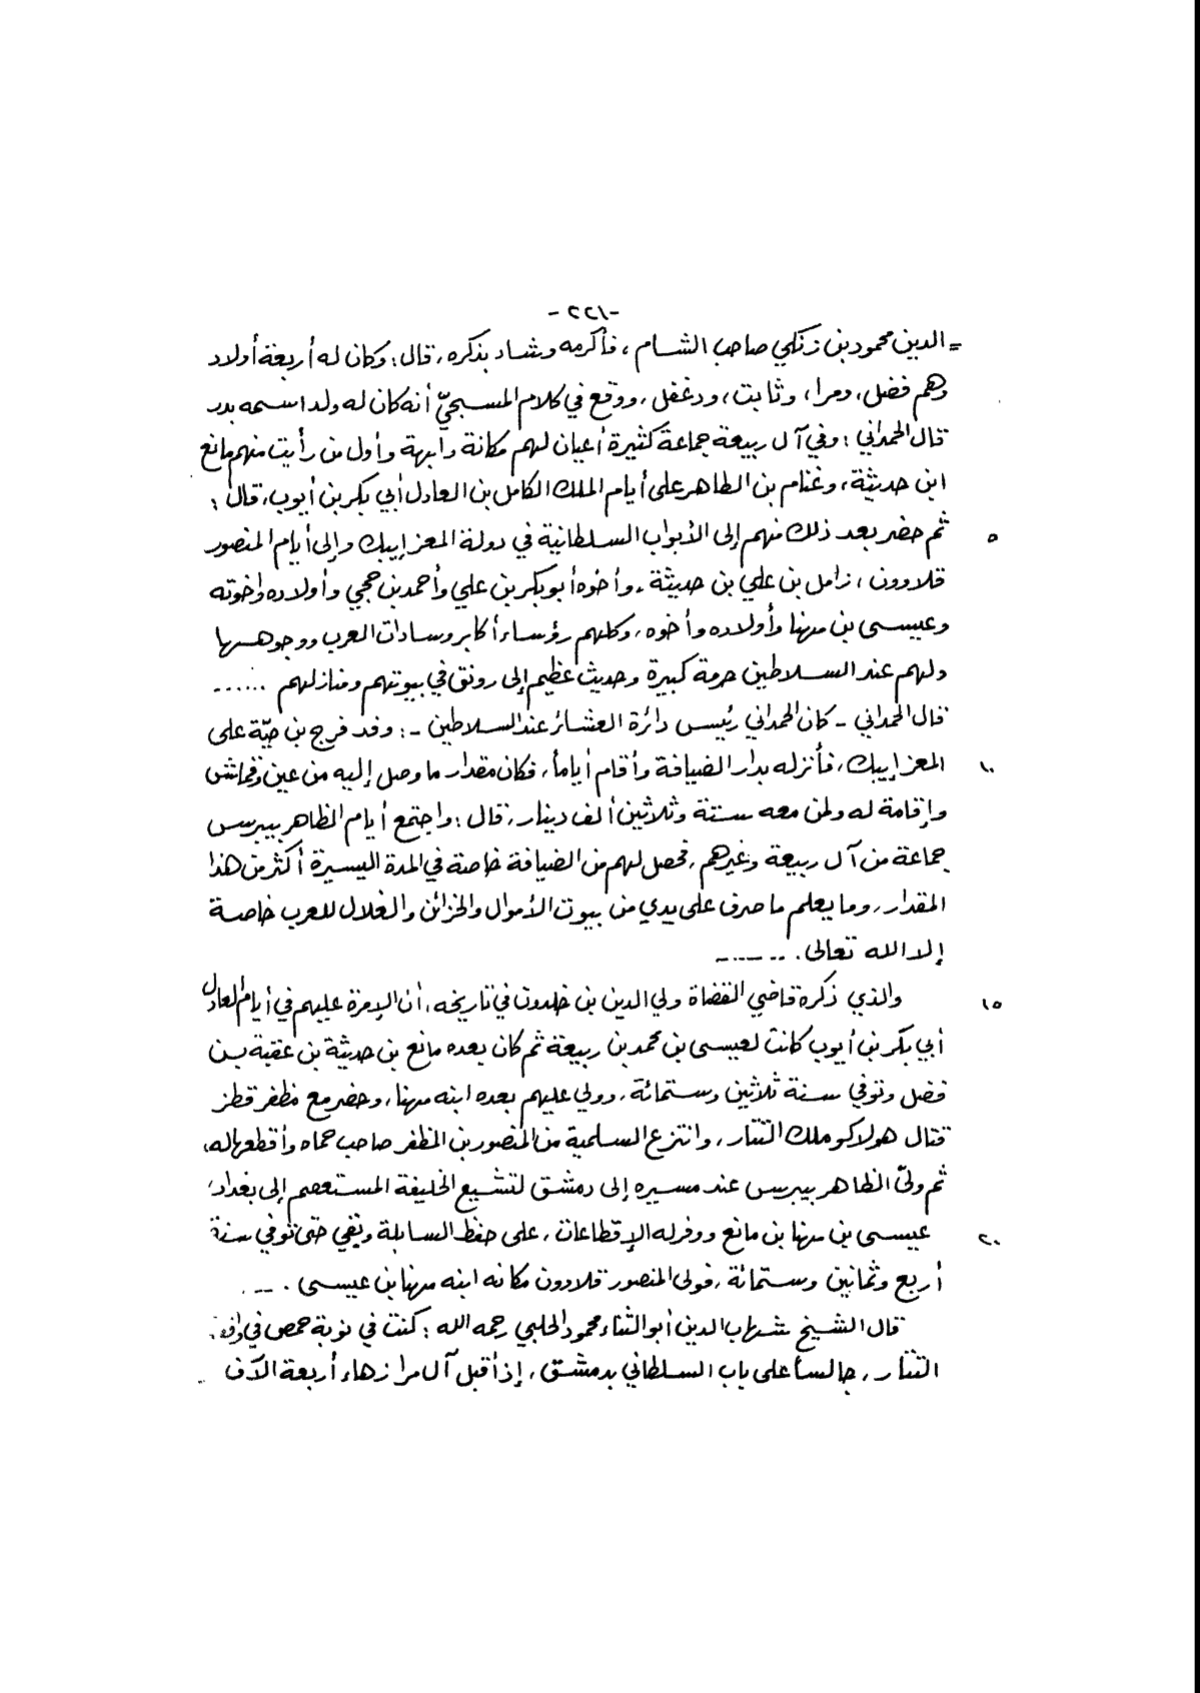 -٢٢١-
= الدين محمود بن زنكي صاحب الشام، فأكرمه وشاد بذكره، قال: وكان له أربعة أولاد
وهم فضل، ومرا، وثابت، ودغفل، ووقع في كلام المسبحيّ أنه كان له ولد اسمه بدر
قال الحمداني: وفي آل ربيعة جماعة كثيرة أعيان لهم مكانة وابهة وأول من رأيت منهم مانع
ابن حديثة، وغنام بن الطاهر على أيام الملك الكامل بن العادل أبي بكر بن أيوب، قال:
٥ ثم حضر بعد ذلك منهم إلى الأبواب السلطانية في دولة المعز إيبك وإلى أيام المنصور
قلاوون، زامل بن علي بن حديثة، وأخوه أبو بكر بن علي وأحمد بن حجي وأولاده وأخوته
وعيسى بن مهنا وأولاده وأخوه، وكلهم رؤساء أكابر وسادات العرب ووجوهها
ولهم عند السلاطين حرمة كبيرة وحديث عظيم إلى رونق في بيوتهم ومنازلهم ......
قال الحمداني - كان الحمداني رئيس دائرة العشائر عند السلاطين -: وفد فرج بن حيّة على
١٠ المعز إيبك، فأنزله بدار الضيافة وأقام أياماً، فكان مقدار ما وصل إليه من عين وقماش
وإقامة له ولمن معه ستة وثلاثين ألف دينار، قال: واجتمع أيام الظاهر بيبرس
جماعة من آل ربيعة وغيرهم، فحصل لهم من الضيافة خاصة في المدة اليسيرة أكثر من هذا
المقدار، وما يعلم ما صرف على يدي من بيوت الأموال والخزائن والغلال للعرب خاصة
إلا الله تعالى. ......
١٥ والذي ذكره قاضي القضاة ولي الدين بن خلدون في تاريخه، أن الإمرة عليهم في أيام العادل
أبي بكر بن أيوب كانت لعيسى بن محمد بن ربيعة ثم كان بعده مانع بن حديثة بن عقبة بن
فضل وتوفي سنة ثلاثين وستمائة، وولي عليهم بعده ابنه مهنا، وحضر مع مظفر قطز
قتال هولاكو ملك التتار، وانتزع السلمية من المنصور بن المظفر صاحب حماه وأقطعها له،
ثم ولّى الظاهر بيبرس عند مسيره إلى دمشق لتشييع الخليفة المستعصم إلى بغداد،
٢٠ عيسى بن مهنا بن مانع ووفر له الإقطاعات، على حفظ السابلة وبقي حتى توفي سنة
أربع وثمانين وستمائة، فولى المنصور قلاوون مكانه ابنه مهنا بن عيسى. ...
قال الشيخ شهاب الدين أبو الثناء محمود الحلبي رحمه الله: كنت في نوبة حمص في واقعة
التتار، جالساً على باب السلطاني بدمشق، إذ أقبل آل مرا زهاء أربعة آلاف